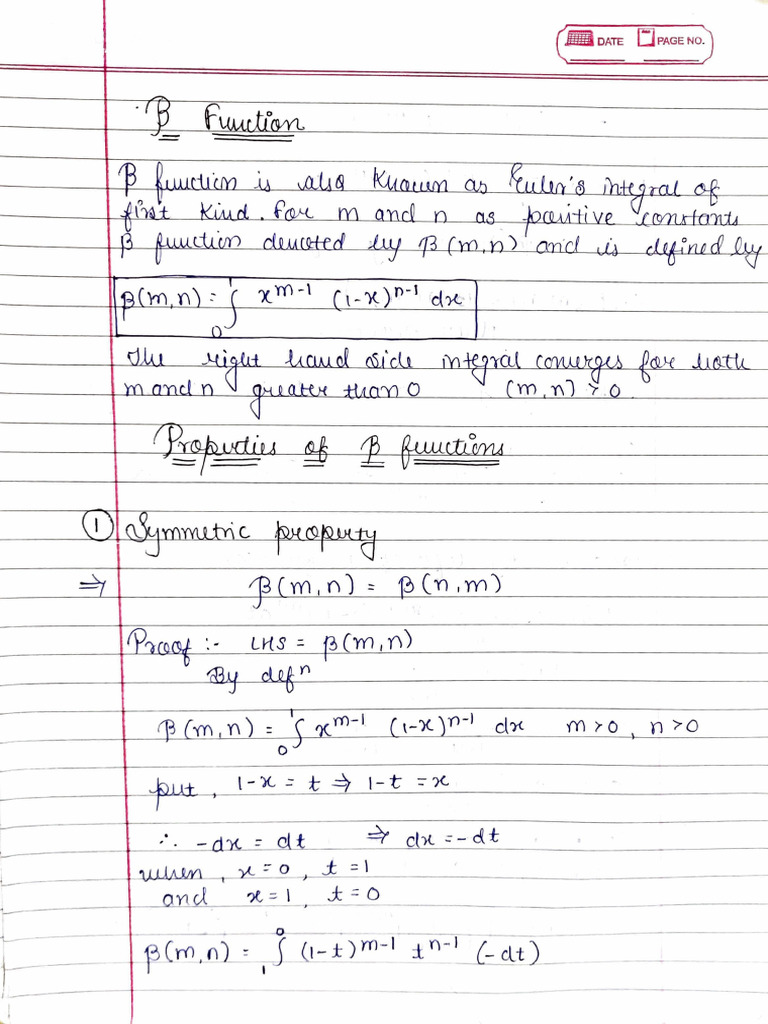 DATE PAGE NO.
β Function
β function is also known as Euler's integral of
first kind. For m and n as positive constants
β function denoted by β(m,n) and is defined by
β(m,n) = ∫₀¹ x^{m-1} (1-x)^{n-1} dx
The right hand side integral converges for both
m and n greater than 0 (m,n) > 0
Properties of β functions
① Symmetric property
⇒ β(m,n) = β(n,m)
Proof :- LHS = β(m,n)
By defⁿ
β(m,n) = ∫₀¹ x^{m-1} (1-x)^{n-1} dx m>0, n>0
put, 1-x = t ⇒ 1-t = x
∴ -dx = dt ⇒ dx = -dt
when, x=0, t=1
and x=1, t=0
β(m,n) = ∫₁⁰ (1-t)^{m-1} t^{n-1} (-dt)